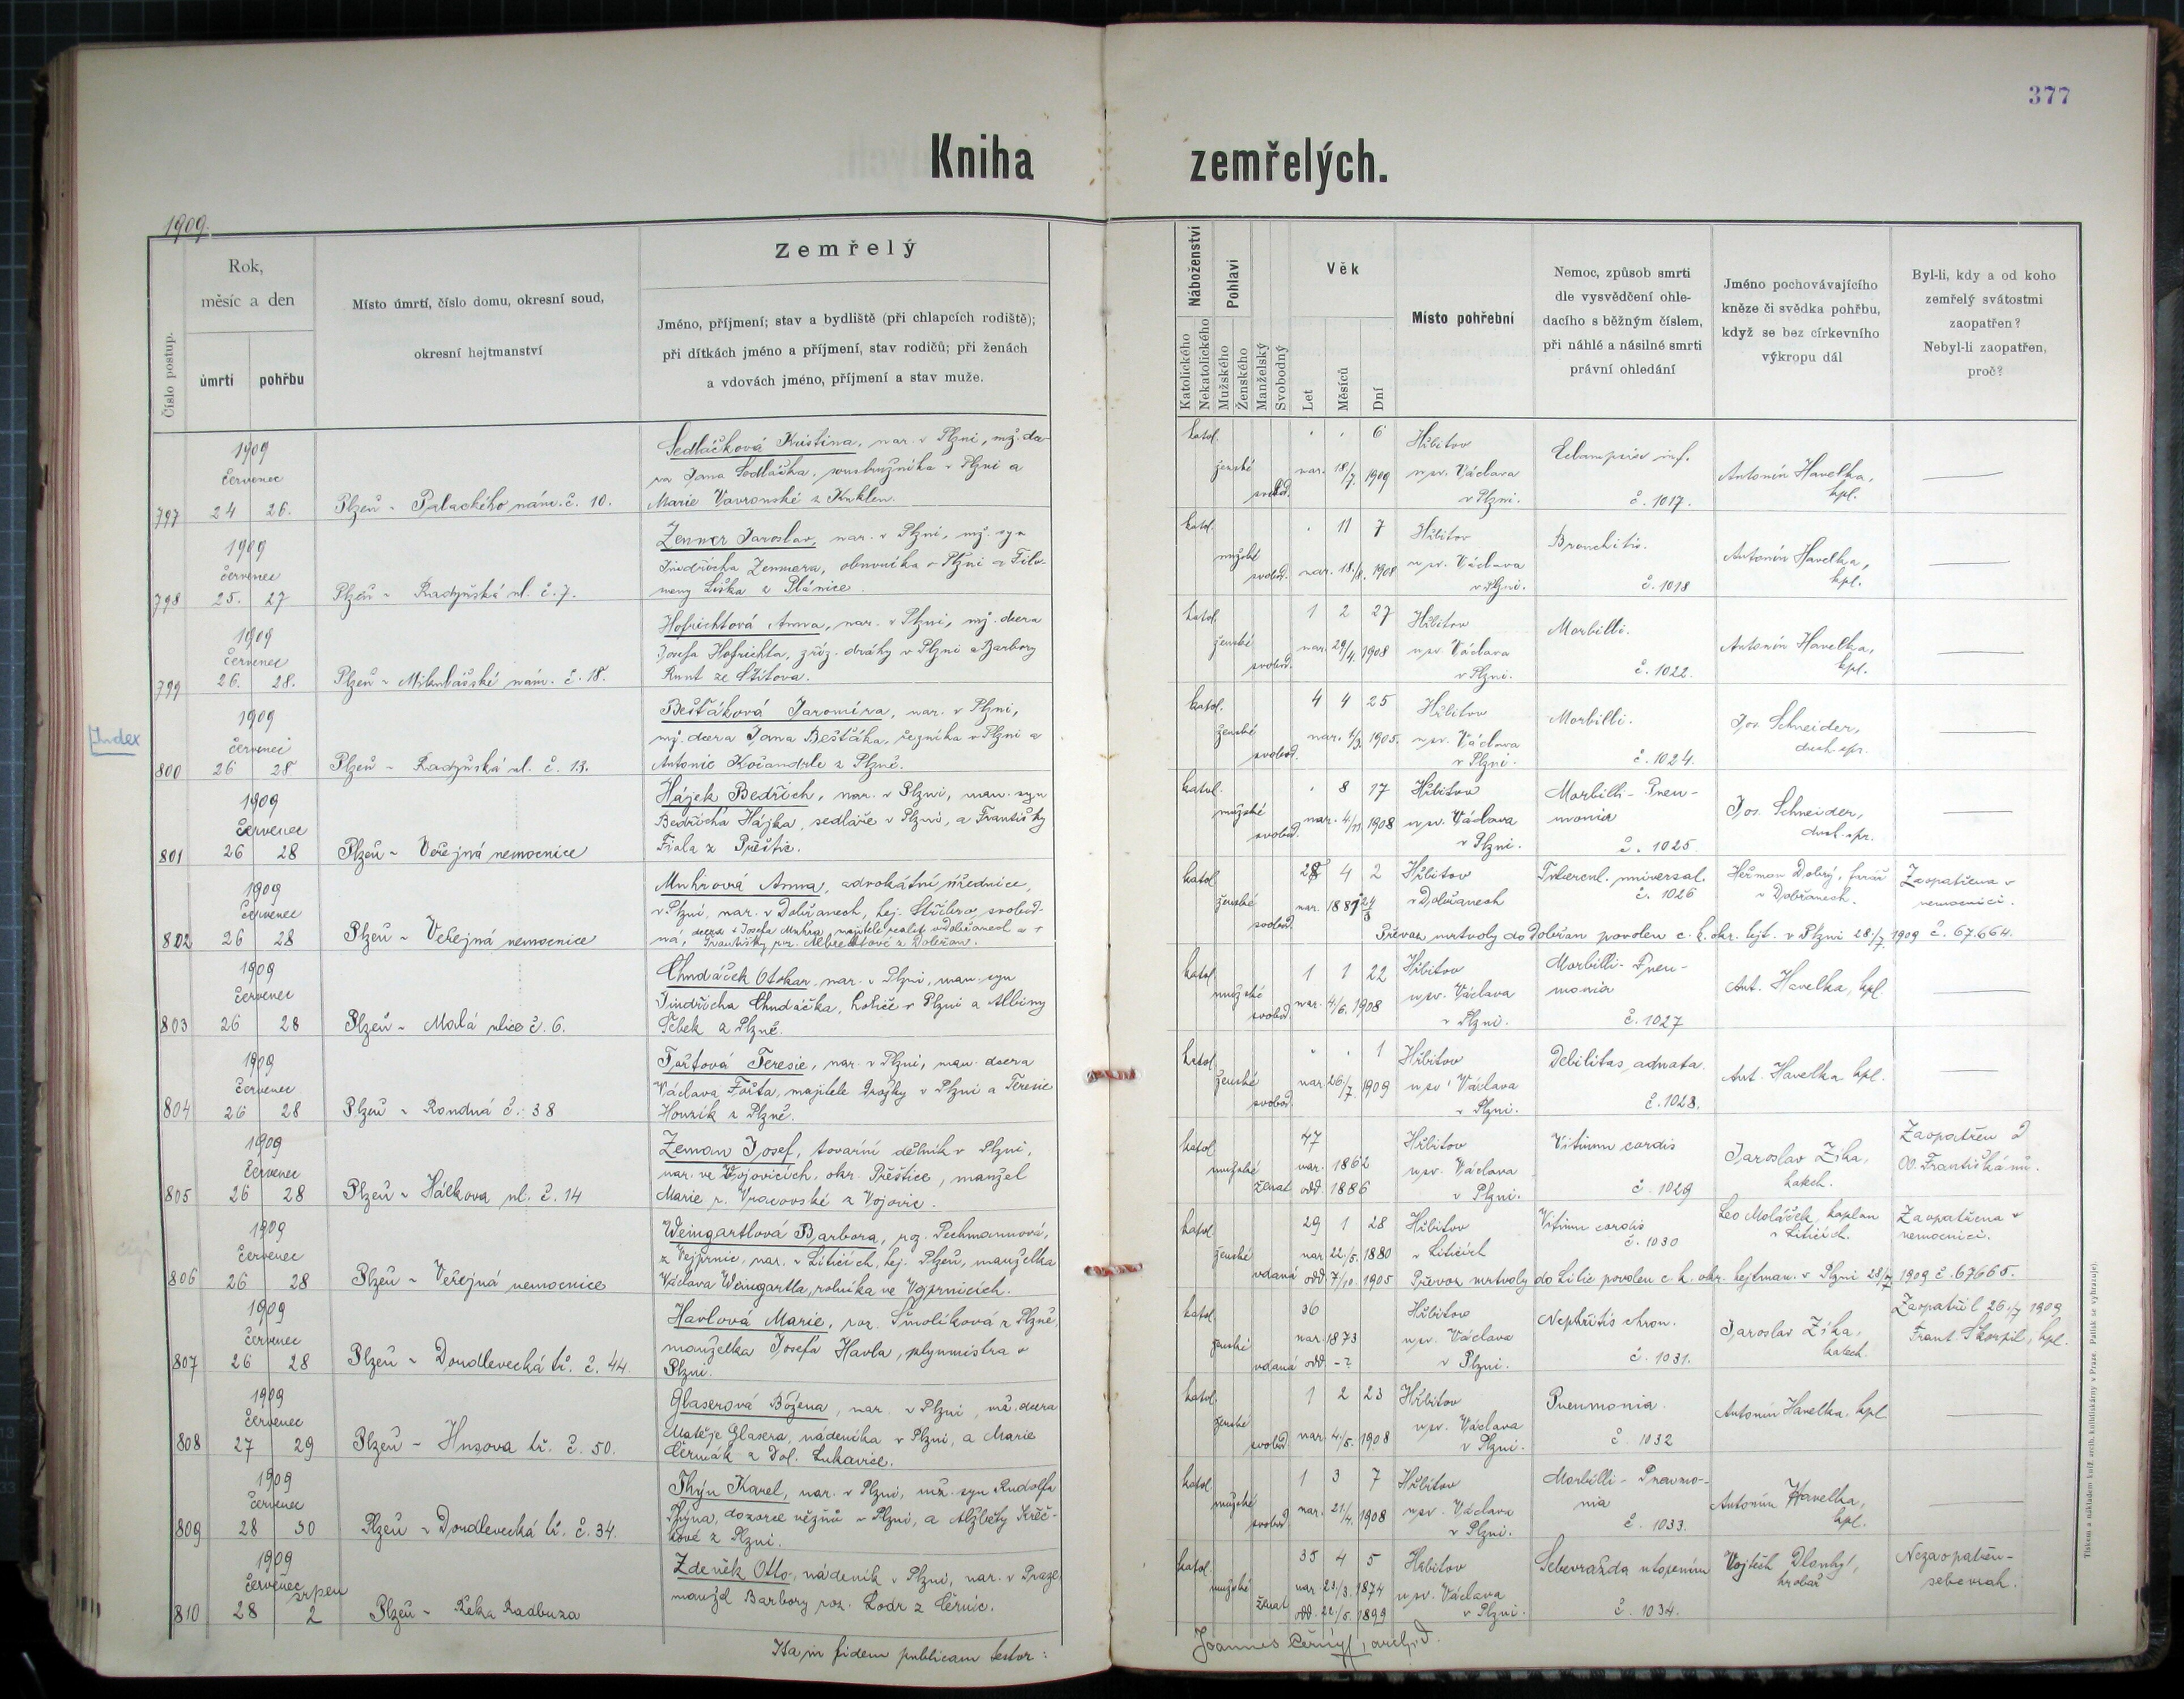 377
Kniha zemřelých.
1909.
Číslo postup.
Rok,
měsíc a den
úmrtí
pohřbu
Místo úmrtí, číslo domu, okresní soud,
okresní hejtmanství
Zemřelý
Jméno, příjmení; stav a bydliště (při chlapcích rodiště);
při dítkách jméno a příjmení, stav rodičů; při ženách
a vdovách jméno, příjmení a stav muže.
Náboženství
Katolického
Nekatolického
Pohlaví
Mužského
Ženského
Manželský
Svobodný
Věk
Let
Měsíců
Dní
Místo pohřební
Nemoc, způsob smrti
dle vysvědčení ohle-
dacího s běžným číslem,
při náhlé a násilné smrti
právní ohledání
Jméno pochovávajícího
kněze či svědka pohřbu,
když se bez církevního
výkropu dál
Byl-li, kdy a od koho
zemřelý svátostmi
zaopatřen?
Nebyl-li zaopatřen,
proč?
1909
červenec
797 24 26. Plzeň - Palackého nám. č. 10.
Sedláčková Kristina, nar. v Plzni, mž. dce-
ra Jana Sedláčka, soustružníka v Plzni a
Marie Vavronské z Kuklen.
katol. ženské svobod. 6
nar. 18/7. 1909
Hřbitov
u sv. Václava
v Plzni.
Eclampsier inf.
č. 1017.
Antonín Havelka,
kpl.
1909
červenec
798 25. 27 Plzeň - Radyňská ul. č. 7.
Zenner Jaroslav, nar. v Plzni, mž. syn
Jindřicha Zennera, obuvníka v Plzni a Filo-
meny Liška z Plánice.
katol. mužské svobod. 11 7
nar. 18./8. 1908
Hřbitov
u sv. Václava
v Plzni.
Bronchitis.
č. 1018
Antonín Havelka,
kpl.
1909
červenec
799 26. 28. Plzeň - Mikulášské nám. č. 18.
Hofrichtová Anna, nar. v Plzni, mž. dcera
Josefa Hofrichta, zříz. dráhy v Plzni a Barbory
Runt ze Ližitova.
katol. ženské svobod. 1 2 27
nar. 29/4. 1908
Hřbitov
u sv. Václava
v Plzni.
Morbilli.
č. 1022.
Antonín Havelka,
kpl.
Index
1909
červenec
800 26 28 Plzeň - Radyňská ul. č. 13.
Bešťáková Jaromíra, nar. v Plzni,
mž. dcera Jana Bešťáka, řezníka v Plzni a
Antonie Kočandrle z Plzně.
katol. ženské svobod. 4 4 25
nar. 1/3. 1905.
Hřbitov
u sv. Václava
v Plzni.
Morbilli.
č. 1024.
Jos. Schneider,
duch. spr.
1909
červenec
801 26 28 Plzeň - Veřejná nemocnice
Hájek Bedřich, nar. v Plzni, man. syn
Bedřicha Hájka, sedláře v Plzni, a Františky
Fiala z Přeštic.
katol. mužské svobod. 8 17
nar. 4/11 1908
Hřbitov
u sv. Václava
v Plzni.
Morbilli - Pneu-
monia
č. 1025.
Jos. Schneider,
duch. spr.
1909
červenec
802 26 28 Plzeň - Veřejná nemocnice
Muhrová Anna, advokátní úřednice,
v Plzni, nar. v Dobřanech, hej. Stříbro, svobod-
ná, dcera + Josefa Muhra, majitele realit v Dobřanech a +
Františky roz. Albrechtové z Dobřan.
katol. ženské svobod. 28 4 2
nar. 1881 24/3
Hřbitov
v Dobřanech
Tubercul. universal.
č. 1026
Heřman Dobrý, farář
v Dobřanech.
Zaopatřena v
nemocnici.
Převoz mrtvoly do Dobřan povolen c. k. okr. hejt. v Plzni 28./7. 1909 č. 67.664.
1909
červenec
803 26 28 Plzeň - Malá ulice č. 6.
Chudáček Otokar, nar. v Plzni, man. syn
Jindřicha Chudáčka, holiče v Plzni a Albiny
Šebek z Plzně.
katol. mužské svobod. 1 1 22
nar. 4/6. 1908
Hřbitov
u sv. Václava
v Plzni.
Morbilli - Pneu-
monia
č. 1027
Ant. Havelka, kpl.
1909
červenec
804 26 28 Plzeň - Rondná č. 38
Fořtová Teresie, nar. v Plzni, man. dcera
Václava Foršta, majitele drožky v Plzni a Teresie
Hourik z Plzně.
katol. ženské svobod. 1
nar. 26/7. 1909
Hřbitov
u sv. Václava
v Plzni.
Debilitas adnata.
č. 1028.
Ant. Havelka kpl.
1909
červenec
805 26 28 Plzeň - Hálkova ul. č. 14
Zeman Josef, tovární dělník v Plzni,
nar. ve Vojovicích, okr. Přeštice, manžel
Marie r. Vracovské z Vojovic.
katol. mužské ženat 47
nar. 1862
odd. 1886
Hřbitov
u sv. Václava
v Plzni.
Vitium cordis
č. 1029
Jaroslav Zíka,
katech.
Zaopatřen od
OO. Františkánů.
1909
červenec
806 26 28 Plzeň - Veřejná nemocnice
Weingartlová Barbora, roz. Pechmannová,
z Vejprnic, nar. v Liticích, hej. Plzeň, manželka
Václava Weingartla, rolníka ve Vejprnicích.
katol. ženské vdaná 29 1 28
nar. 22./5. 1880
odd. 7/10. 1905
Hřbitov
v Liticích
Vitium cordis
č. 1030
Leo Moláček, kaplan
v Liticích.
Zaopatřena v
nemocnici.
Převoz mrtvoly do Litic povolen c. k. okr. hejtman. v Plzni 28/7 1909 č. 67665.
1909
červenec
807 26 28 Plzeň - Doudlevecká tř. č. 44.
Havlová Marie, roz. Šmolíková z Plzně,
manželka Josefa Havla, plynmistra v
Plzni.
katol. ženské vdaná 36
nar. 1873
odd - ?
Hřbitov
u sv. Václava
v Plzni.
Nephritis chron.
č. 1031.
Jaroslav Zíka,
katech.
Zaopatřil 26./7 1909
Frant. Škorpil, kpl.
1909
červenec
808 27 29 Plzeň - Husova tř. č. 50.
Glaserová Božena, nar. v Plzni, mž. dcera
Matěje Glasera, nádeníka v Plzni, a Marie
Čermák z Dol. Lukavice.
katol. ženské svobod. 1 2 23
nar. 4./5. 1908
Hřbitov
u sv. Václava
v Plzni.
Pneumonia.
č. 1032
Antonín Havelka, kpl
1909
červenec
809 28 30 Plzeň - Doudlevecká tř. č. 34.
Thýn Karel, nar. v Plzni, mž. syn Rudolfa
Thýna, dozorce vězňů v Plzni, a Alžběty Křeč-
kové z Plzni.
katol. mužské svobod. 1 3 7
nar. 21/4. 1908
Hřbitov
u sv. Václava
v Plzni.
Morbilli - Pneumo-
nia
č. 1033.
Antonín Havelka,
kpl.
1909
červenec srpen
810 28 2 Plzeň - Řeka Radbuza
Zdeněk Otto, nádeník v Plzni, nar. v Praze
manžel Barbory roz. Rodr z Černic.
katol. mužské ženat 35 4 5
nar. 23/3. 1874
odd. 22/5. 1899
Hřbitov
u sv. Václava
v Plzni.
Sebevražda utopením
č. 1034.
Vojtěch Dlouhý,
hrobař
Nezaopatřen -
sebevrah.
Ita in fidem publicam testor:
Joannes Černý, archid.